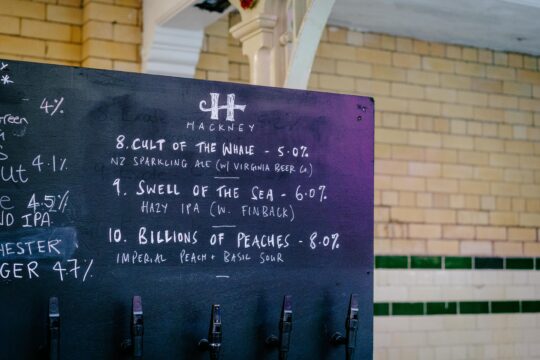 4%
4.1%
4.5%
ND IPA
CHESTER
GER 4.7%
H
HACKNEY
8. CULT OF THE WHALE - 5.0%
NZ SPARKLING ALE (W/ VIRGINIA BEER Co.)
9. SWELL OF THE SEA - 6.0%
HAZY IPA (W. FINBACK)
10. BILLIONS OF PEACHES - 8.0%
IMPERIAL PEACH + BASIC SOUR